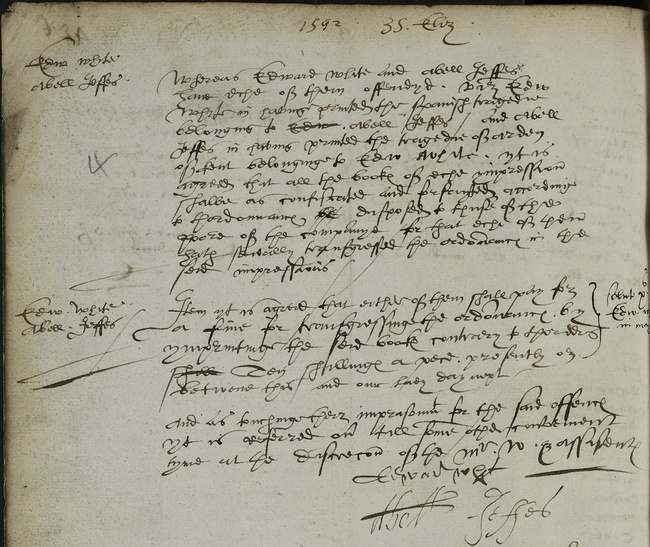 1592. 35. Eliz
Edw. white
Abell Jeffes.
Whereas Edward white and Abell Jeffes
haue eche of them offendyd. viz Edw
White in having printed the spanish tragedie
belonging to Edw. Abell Jeffes / and Abell
Jeffes in having printed the tragedie of arden
of kent belonginge to Edw white. yt is
agreed that all the bookes of eche impression
shalbe as confiscated and forfayted accordinge
to thordonnances disposed to thuse of the
poore of the companye for that eche of them
hath seuerally transgressed the ordonnances in the
seid impressions
Edw. white
Abell. Jeffes
Item yt is agreed that either of them shall pay for
a fine for transgressinge the ordonnances by
ymprintinge the seid bookes contrary to thorders
shill Ten shillinges a pece. presently or
betwene this and our lady day next
And as touchinge their imprisonmt for the said offence
yt is referred ouer till some other convenient
tyme at the discrecon of the mr. w. & assistentes
Edward whit
Abell Jeffes